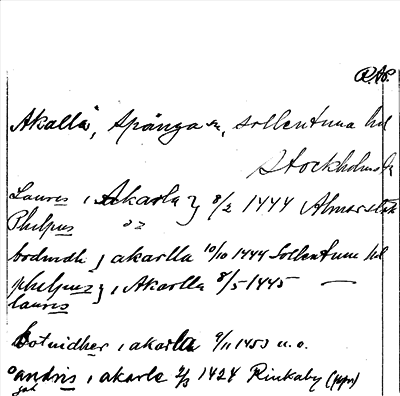 RAp.
Akalla, Spånga sn, Sollentuna hd
Stockholms l.
Laurĕs i Akarla } 8/2 1444 Almarstäk
Phelpus " "
bodmdh j akarlla 10/10 1444 Sollentuna hd
phelpus } i Akarlla 8/5 1445 —
laures
botuidher i akarla 9/11 1453 u.o.
andris i akarle 2/3 1424 Rinkaby (ppr)